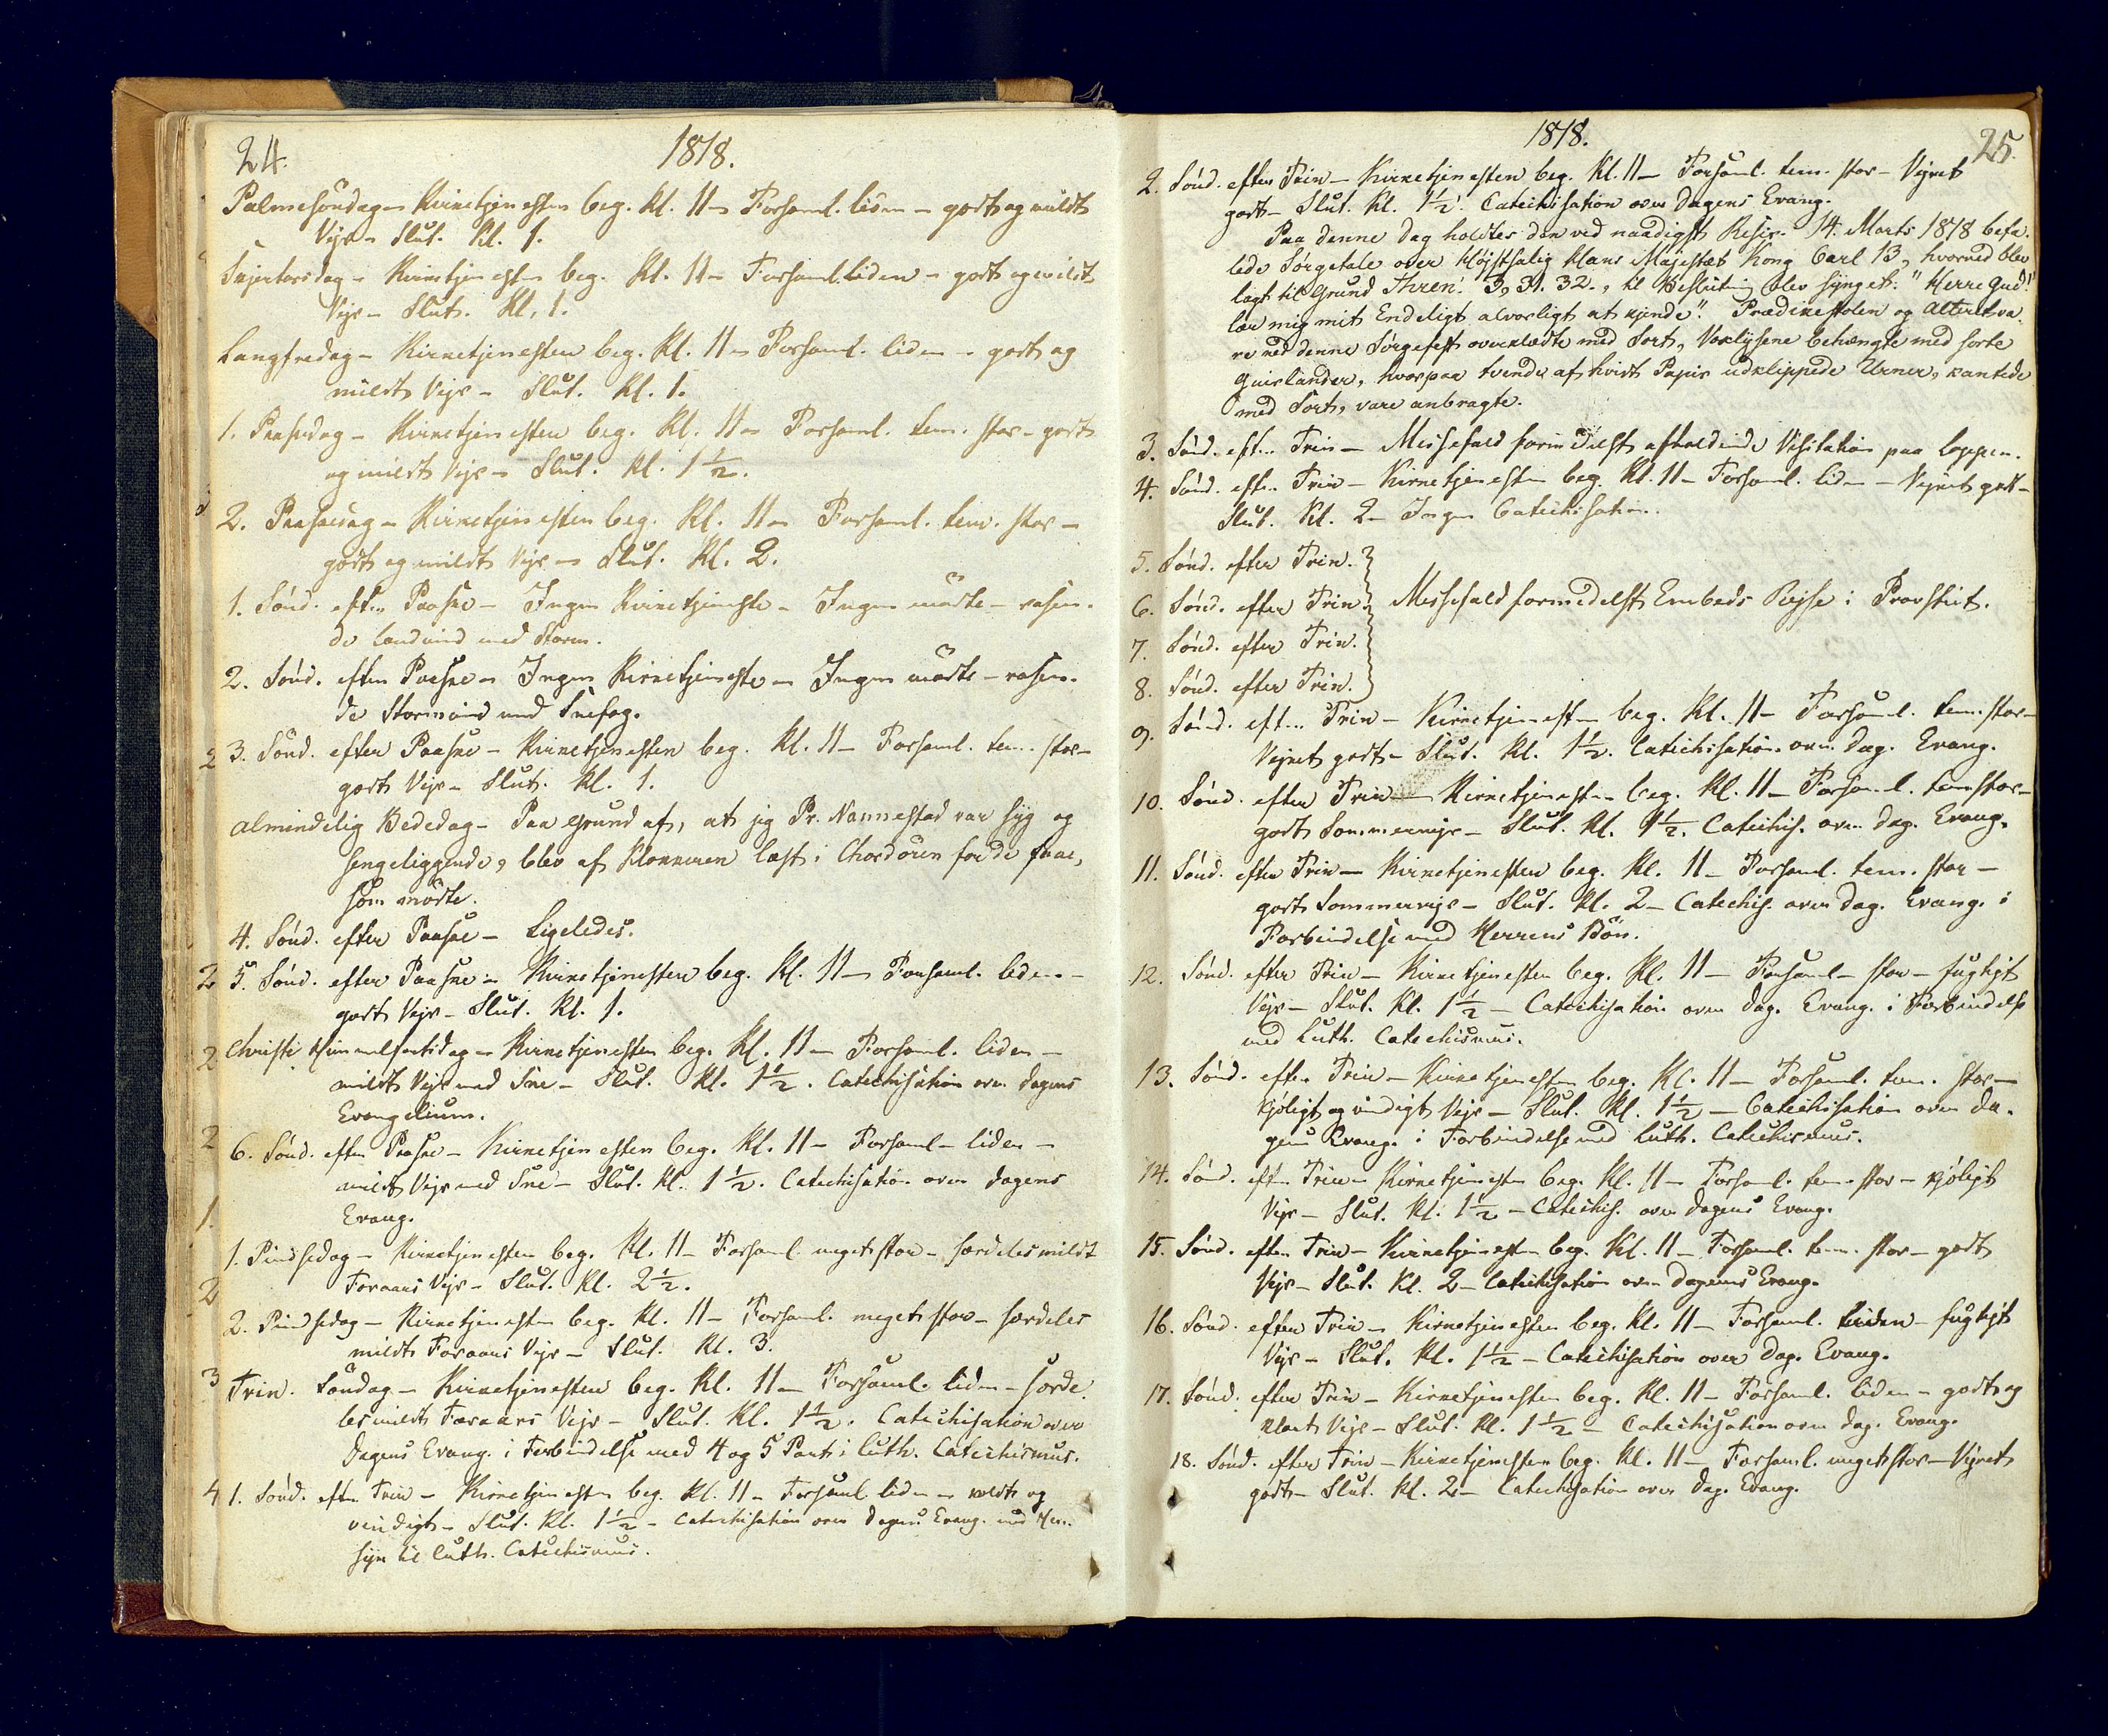 24.
1818.
Palmesöndag – Kirketjenesten beg. Kl. 11 – Forsaml. liden – godt og mildt
Vejr – Slut. Kl. 1.
Skjertorsdag – Kirketjenesten beg. Kl. 11 – Forsaml. liden – godt og mildt
Vejr – Slut. Kl. 1.
Langfredag – Kirketjenesten beg. Kl. 11 – Forsaml. liden – godt og
mildt Vejr – Slut. Kl. 1.
1. Paaskedag – Kirketjenesten beg. Kl. 11 – Forsaml. tem. stor – godt
og mildt Vejr – Slut. Kl. 1½.
2. Paaskedag – Kirketjenesten beg. Kl. 11 – Forsaml. tem. stor –
godt og mildt Vejr – Slut. Kl. 2.
1. Sönd. efter Paaske – Ingen Kirketjeneste – Ingen mödte – rasen-
de Landvind med Storm.
2. Sönd. efter Paaske – Ingen Kirketjeneste – Ingen mödte – rasen-
de Stormvind med Snefog.
3. Sönd. efter Paaske – Kirketjenesten beg. Kl. 11 – Forsaml. tem. stor –
godt Vejr – Slut. Kl. 1.
Almindelig Bededag – Paa Grund af, at jeg Pr. Nannestad var syg og
sengeliggende, blev af Klokkeren læst i Chordören for de faae,
som mödte.
4. Sönd. efter Paaske – Ligeledes.
5. Sönd. efter Paaske – Kirketjenesten beg. Kl. 11 – Forsaml. liden –
godt Vejr – Slut. Kl. 1.
Christi Himmelfartsdag – Kirketjenesten beg. Kl. 11 – Forsaml. liden –
mildt Vejr med Sne – Slut. Kl. 1½. Catechisation over Dagens
Evangelium.
6. Sönd. efter Paaske – Kirketjenesten beg. Kl. 11 – Forsaml – liden –
mildt Vejr med Sne – Slut. Kl. 1½. Catechisation over Dagens
Evang.
1. Pindsedag – Kirketjenesten beg. Kl. 11 – Forsaml. meget stor – særdeles mildt
Foraars Vejr – Slut. Kl. 2½.
2. Pindsedag – Kirketjenesten beg. Kl. 11 – Forsaml. meget stor – særdeles
mildt Foraars Vejr – Slut. Kl. 3.
Trin. Söndag – Kirketjenesten beg. Kl. 11 – Forsaml. liden – særde-
les mildt Foraars Vejr – Slut. Kl. 1½. Catechisation over
Dagens Evang. i Forbindelse med 4 og 5 Part i Luth. Catechismus.
1. Sönd. efter Trin – Kirketjenesten beg. Kl. 11 – Forsaml. liden – koldt og
vindigt – Slut. Kl. 1½ – Catechisation over Dagens Evang. med Hen-
syn til Luth. Catechismus.
1818.
25.
2. Sönd. efter Trin – Kirketjenesten beg. Kl. 11 – Forsaml. tem. stor – Vejret
godt – Slut. Kl. 1½. Catechisation over Dagens Evang.
Paa denne Dag holdtes den ved naadigst Reskr. 14. Marts 1818 befa-
lede Sörgetale over Höjstsalig Hans Majestæt Kong Carl 13, hvorved blev
lagt til Grund Thren. 3, 31. 32., til Beslutning blev synget: "Herre Gud!
lær mig mit Endeligt alvorligt at kjende". Prædikestolen og Alteret va-
re ved denne Sörgefest overklædte med Sort, Voxlysene behængte med sorte
Guirlander, hvorpaa tvende af hvidt Papir udklippede Urner, kantede
med Sort, vare anbragte.
3. Sönd. efter Trin – Messefald formedelst afholdende Visitation paa Loppen.
4. Sönd. efter Trin – Kirketjenesten beg. Kl. 11 – Forsaml. liden – Vejret godt –
Slut. Kl. 2 – Ingen Catechisation.
5. Sönd. efter Trin.
6. Sönd. efter Trin. Messefald formedelst Embeds Rejse i Provstiet.
7. Sönd. efter Trin.
8. Sönd. efter Trin.
9. Sönd. efter Trin – Kirketjenesten beg. Kl. 11 – Forsaml. tem. stor –
Vejret godt – Slut. Kl. 1½. Catechisation over Dag. Evang.
10. Sönd. efter Trin – Kirketjenesten beg. Kl. 11 – Forsaml. tem. stor –
godt Sommervejr – Slut. Kl. 1½. Catechis. over Dag. Evang.
11. Sönd. efter Trin – Kirketjenesten beg. Kl. 11 – Forsaml. tem. stor –
godt Sommervejr – Slut. Kl. 2 – Catechis. over Dag. Evang. i
Forbindelse med Herrens Bön.
12. Sönd. efter Trin – Kirketjenesten beg. Kl. 11 – Forsaml – stor – fugtigt
Vejr – Slut. Kl. 1½ – Catechisation over Dag. Evang. i Forbindelse
med Luth. Catechismus.
13. Sönd. efter Trin – Kirketjenesten beg. Kl. 11 – Forsaml. tem. stor –
kjöligt og vindigt Vejr – Slut. Kl. 1½ – Catechisation over Da-
gens Evang. i Forbindelse med Luth. Catechismus.
14. Sönd. efter Trin – Kirketjenesten beg. Kl. 11 – Forsaml. tem. stor – kjöligt
Vejr – Slut. Kl. 1½ – Catechis. over Dagens Evang.
15. Sönd. efter Trin – Kirketjenesten beg. Kl. 11 – Forsaml. tem. stor – godt
Vejr – Slut. Kl. 2 – Catechisation over Dagens Evang.
16. Sönd. efter Trin – Kirketjenesten beg. Kl. 11 – Forsaml. liden – fugtigt
Vejr – Slut. Kl. 1½ – Catechisation over Dag. Evang.
17. Sönd. efter Trin – Kirketjenesten beg. Kl. 11 – Forsaml. liden – godt og
klart Vejr – Slut. Kl. 1½ – Catechisation over Dag. Evang.
18. Sönd. efter Trin – Kirketjenesten beg. Kl. 11 – Forsaml. meget stor – Vejret
godt – Slut. Kl. 2 – Catechisation over Dag. Evang.